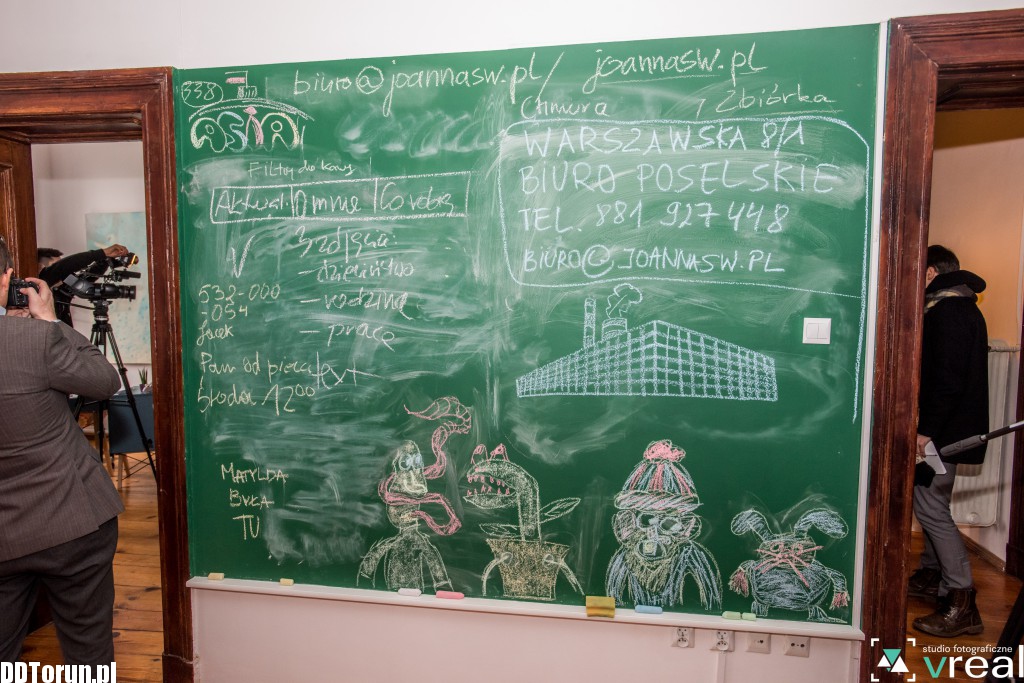 338
biuro@joannasw.pl/
joannasw.pl
Chmura
Zbiórka
ASIA
Filtry do kawy
Aktual. O mnie Co robię
V
3 zdjęcia:
- dzieciństwo
- rodzina
- praca
532-000
-054
Jacek
Pan od pieca
text
Środa 12⁰⁰
MATYLDA
BYŁA
TU
WARSZAWSKA 8/1
BIURO POSELSKIE
TEL. 881 927 448
BIURO@JOANNASW.PL
DDTorun.pl
studio fotograficzne
vreal